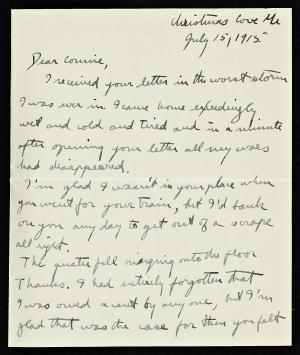 Christmas Cove Me
July 15, 1915.
Dear Connie,
I received your letter in the worst storm
I was ever in. I came home exceedingly
wet and cold and tired and in a minute
after opening your letter all my woes
had disappeared.
I'm glad I wasn't in your place when
you went for your train, but I'd bank
on you any day to get out of a scrape
all right.
The quarter fell ringing onto the floor
Thanks. I had entirely forgotten that
I was owed a cent by anyone, but I'm
glad that was the case for then you felt